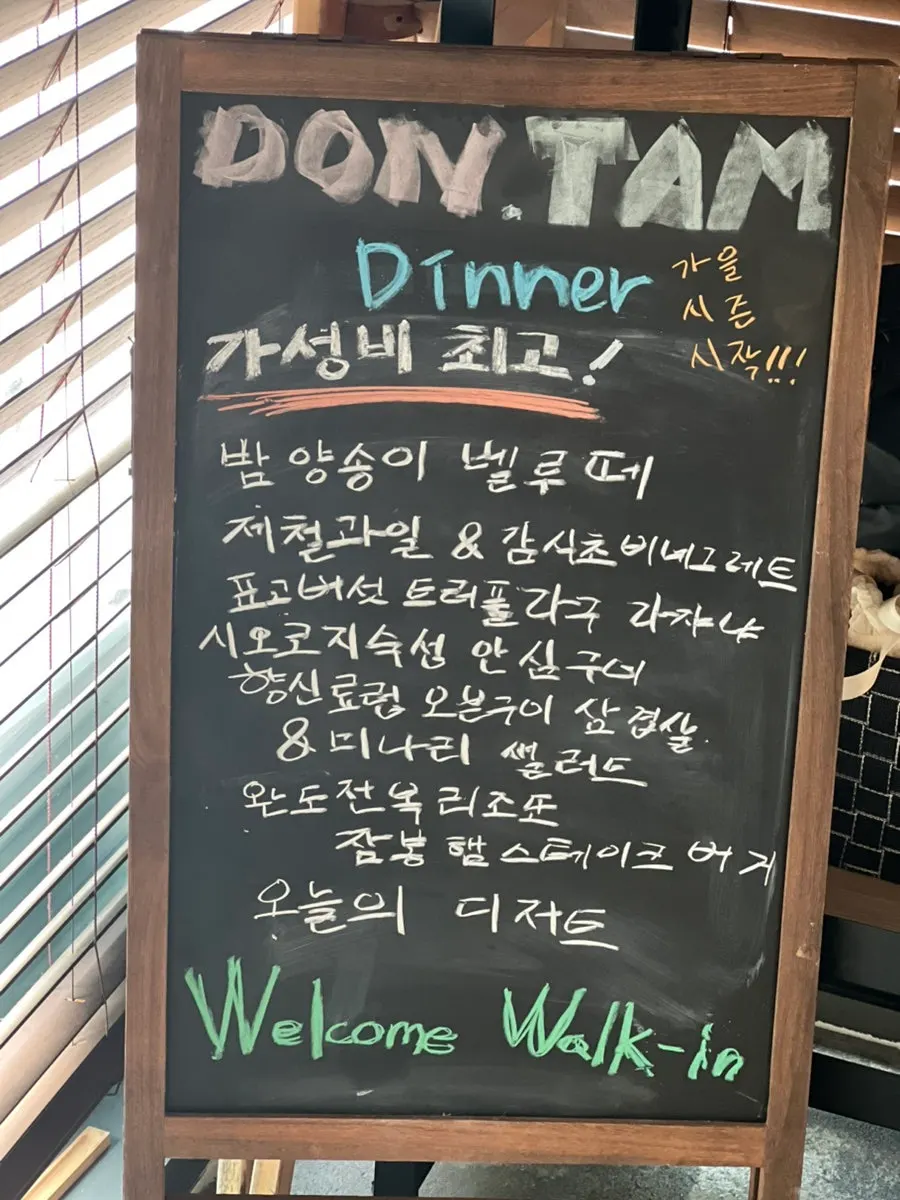 DON.TAM
Dinner
가을
시즌
시작!!!
가성비 최고!
밤 양송이 벨루떼
제철과일 & 감식초비네그레트
표고버섯 트러플라구 라쟈냐
시오코지숙성 안심구이
향신료럽 오븐구이 삼겹살
& 미나리 썰러드
완도전복리조또
잠봉 햄스테이크 버거
오늘의 디저트
Welcome Walk-in